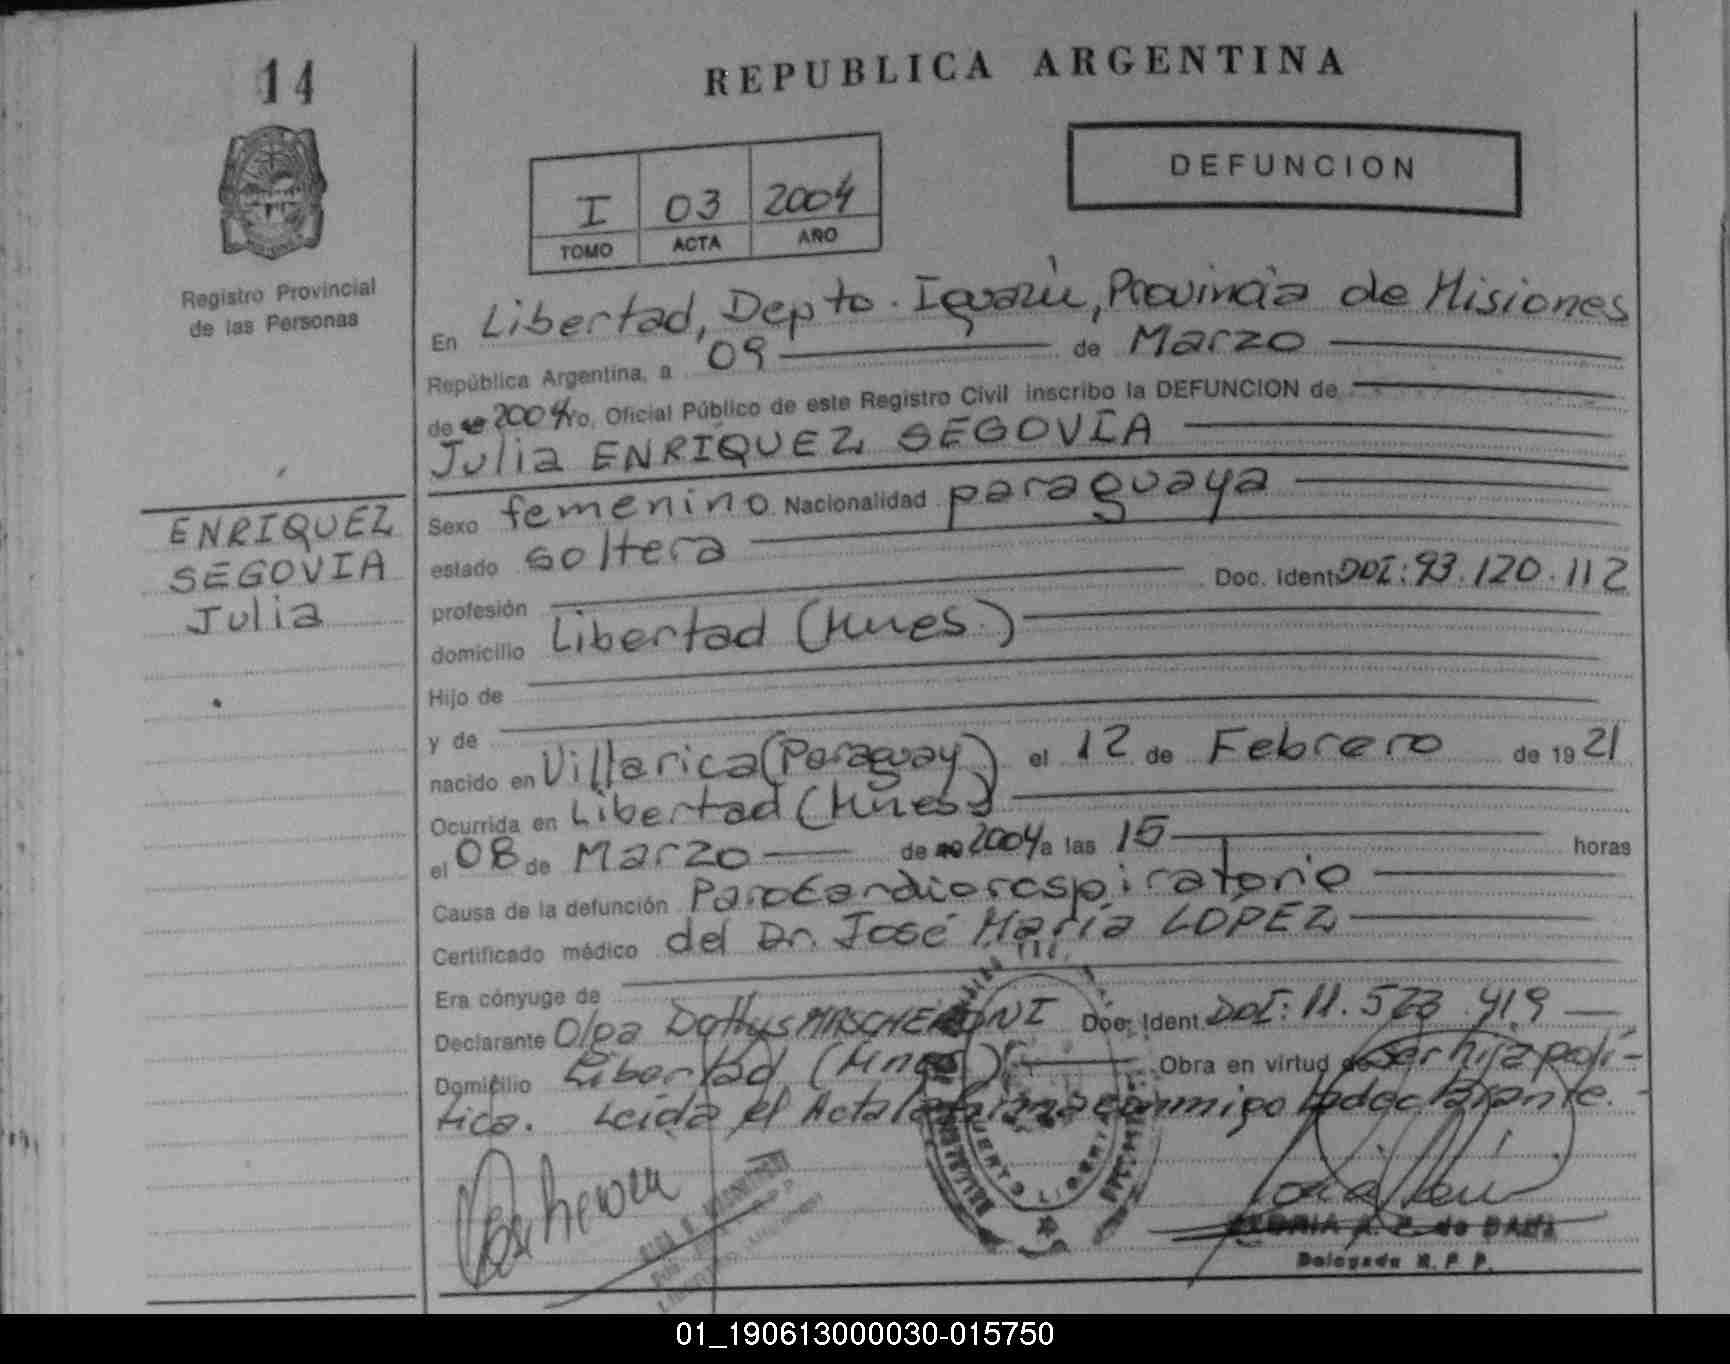 14
REPUBLICA ARGENTINA
DEFUNCION
I 03 2004
TOMO ACTA AÑO
Registro Provincial
de las Personas
En Libertad, Depto. Iguazú, Provincia de Misiones
República Argentina, a 09 de Marzo
de 2004 Yo, Oficial Público de este Registro Civil inscribo la DEFUNCION de
Julia ENRIQUEZ SEGOVIA
ENRIQUEZ
SEGOVIA
Julia
Sexo femenino Nacionalidad paraguaya
estado soltera
profesión Doc. Ident. DOI: 93.120.112
domicilio Libertad (Mnes.)
Hijo de
y de
nacido en Villarica (Paraguay) el 12 de Febrero de 1921
Ocurrida en Libertad (Mnes)
el 08 de Marzo de 2004 a las 15 horas
Causa de la defunción Parocardiorespiratorio
Certificado médico del Dr. José María LOPEZ
Era cónyuge de
Declarante Olga Dottys MASCHERONI Doc. Ident. DOI: 11.573.419
Domicilio Libertad (Mnes) Obra en virtud de ser hija polí-
tica. Leída el Acta la firma conmigo la declarante.
Delegada R. P. P.
01_190613000030-015750